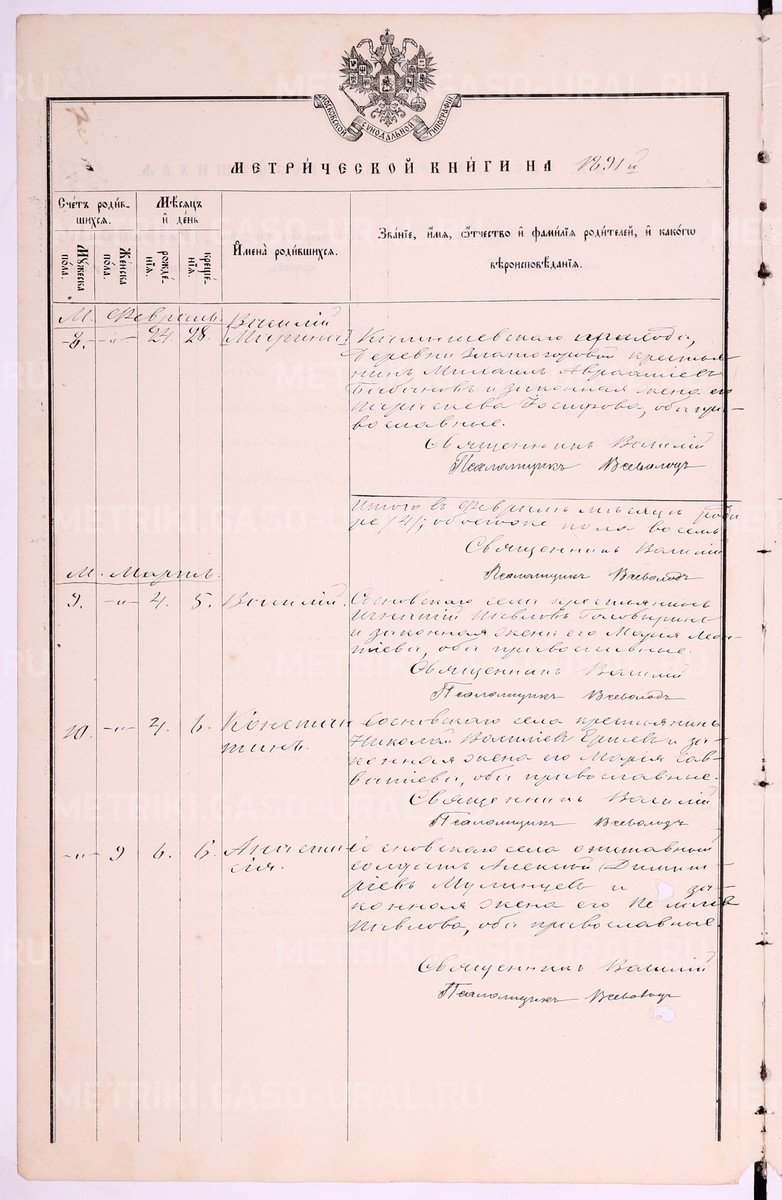 МОСКОВСКОЙ СѴНОДАЛЬНОЙ ТИПОГРАФІИ
МЕТРИ́ЧЕСКОЙ КНИ́ГИ НА 1891й
Сче́тъ роди́в-
шихся.
Мѣ́сяцъ
и де́нь
Имена̀ роди́вшихся.
Зва́нїе, и́мя, ѻ́тчество и фами́лїя роди́телей, и како́гѡ
вѣроисповѣ́данїя.
Мꙋ́жеска по́ла.
Же́нска по́ла.
рожде́нїя.
креще́нїя.
М. Февраль.
8. -"- 24. 28. Василій
(Марина)
прихода,
деревни Златогоровой крестья-
нинъ Михаилъ
Бабановъ и законная жена его
Іосифова, оба пра-
вославные.
Священникъ Василій
Псаломщикъ Всеволодъ
Итого въ Февралѣ мѣсяцѣ
обоего пола восемь
Священникъ Василій
Псаломщикъ Всеволодъ
М. Мартъ.
9. -"- 4. 5. Василій. Сосновскаго села крестьянинъ
Игнатій Павловъ
и законная жена его Марія Леон-
тіева, оба православные.
Священникъ Василій
Псаломщикъ Всеволодъ
10. -"- 4. 6. Констан-
тинъ.
Сосновскаго села крестьянинъ
Николай Василіевъ Ершевъ и за-
конная жена его Марія Сав-
ватіева, оба православные.
Священникъ Василій
Псаломщикъ Всеволодъ
-"- 9 6. 6. Анаста-
сія.
Сосновскаго села отставный
солдатъ Алексій Димит-
ріевъ Мулинцевъ и за-
конная жена его
Павлова, оба православные.
Священникъ Василій
Псаломщикъ Всеволодъ
METRIKI.GASO-URAL.RU